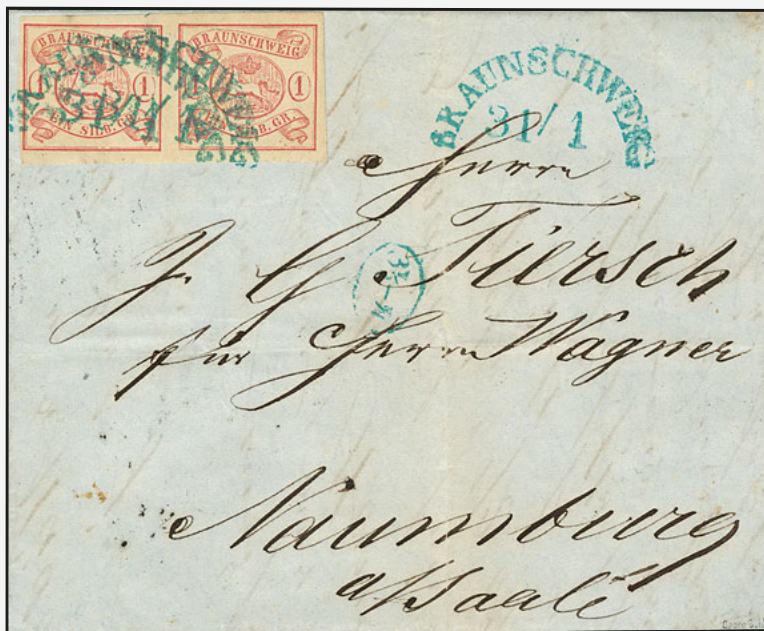 BRAUNSCHWEIG
1 1
EIN SILB. GR.
BRAUNSCHWEIG
1
EIN SILB. GR.
BRAUNSCHWEIG
31/1
BRAUNSCHWEIG
31/1
Herrn
J. G. Tiersch
für Herrn Wagner
Naumburg
a/Saale